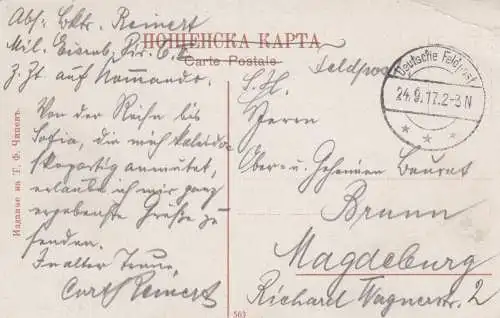 Abs: Bktr. Reinert
Mil. Eisenb. Dir.
z. Zt. auf Kommando.
ПОЩЕНСКА КАРТА
Carte Postale
Feldpost
Deutsche Feldpost
24.9.17.2-3 N
Von der Reise bis
Sofia, die mich kaleido-
skopartig anmutet,
erlaube ich mir ganz
ergebenste Grüße zu
senden.
In alter Treue
Curt Reinert
S. H.
Herrn
Ober- u. Geheimen Baurat
Brunn
Magdeburg
Richard Wagnerstr. 2
Издание на Т. Ф. Чипевъ.
563